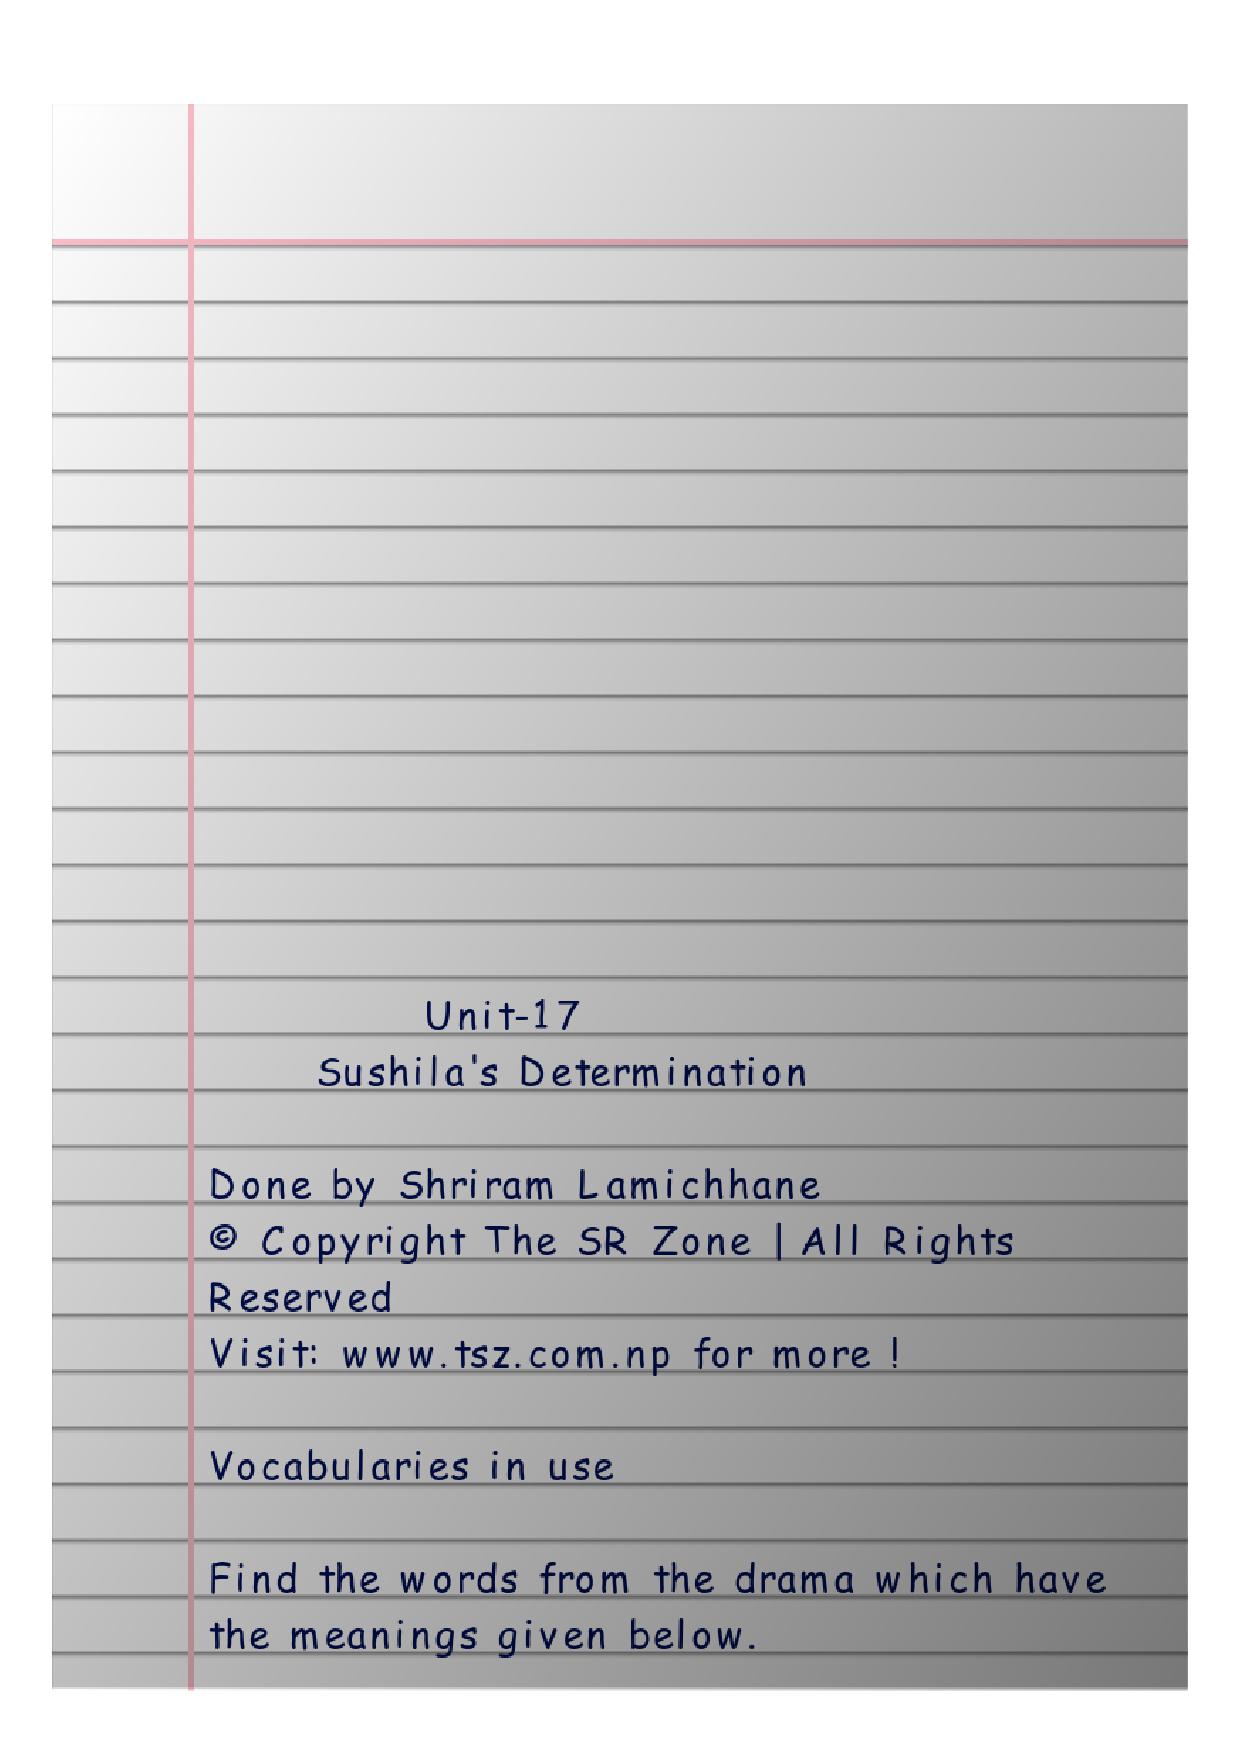 Unit-17
Sushila's Determination
Done by Shriram Lamichhane
© Copyright The SR Zone | All Rights
Reserved
Visit: www.tsz.com.np for more !
Vocabularies in use
Find the words from the drama which have
the meanings given below.